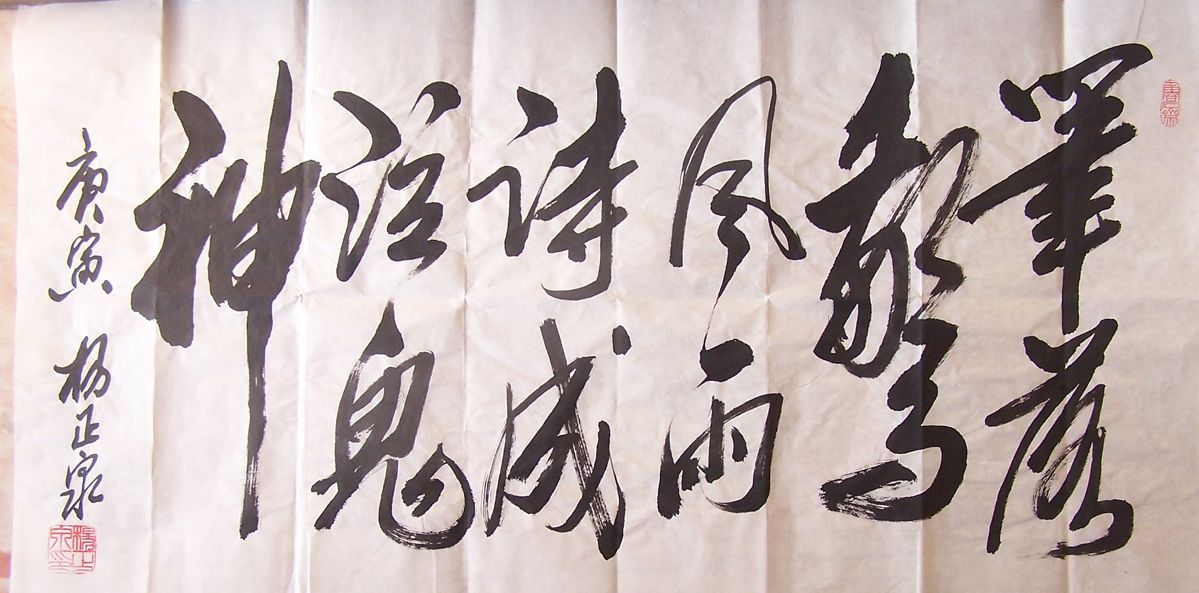 筆落
驚
風雨
詩成
泣鬼
神
庚寅 楊正泉